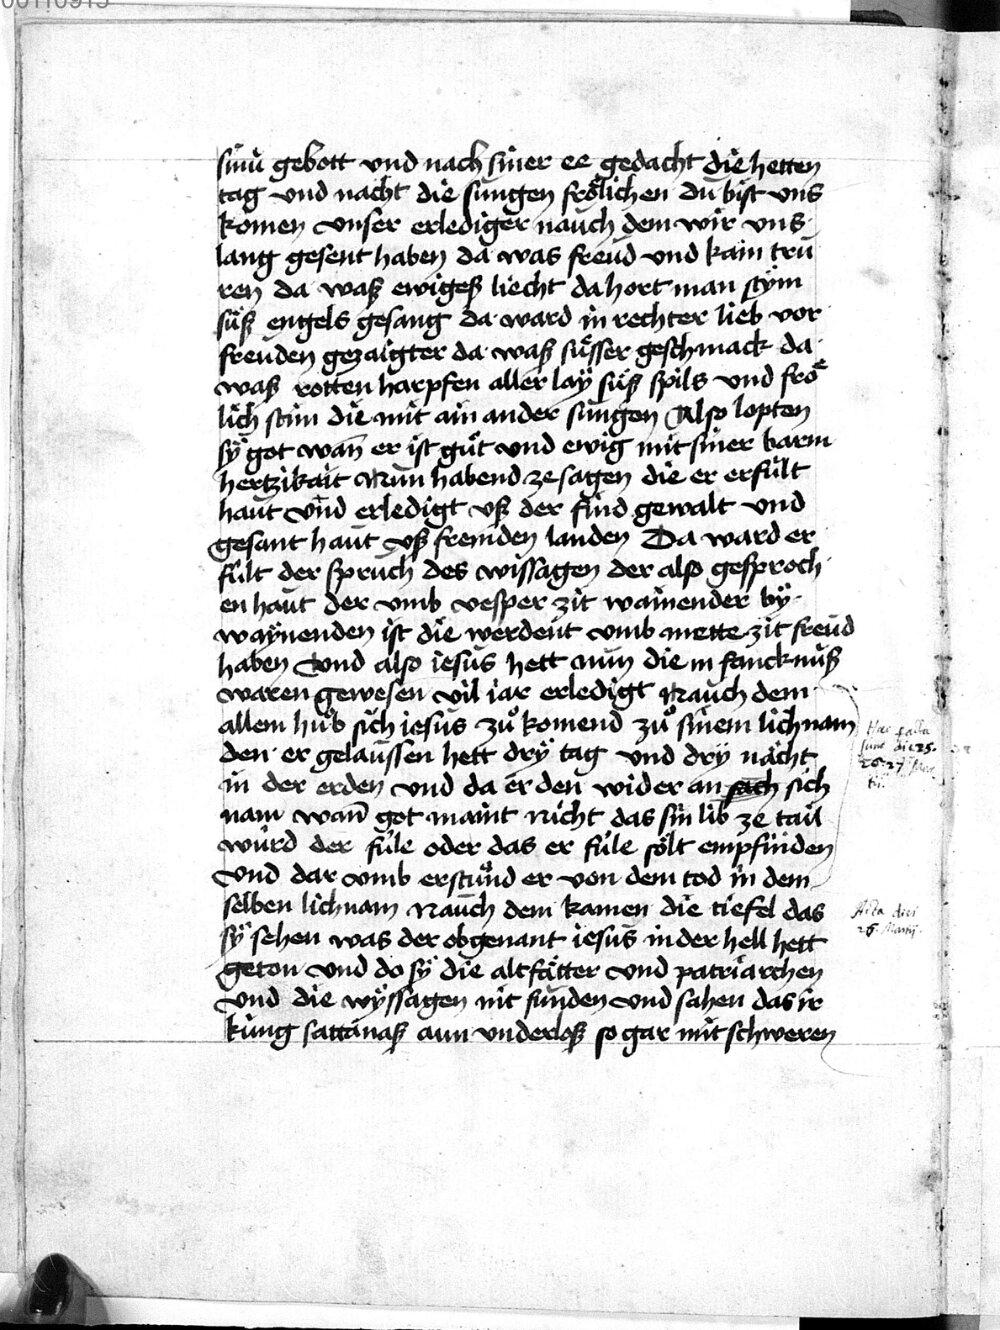 sinü gebott vnd nach siner ee gedacht die hetten
tag vnd nacht die sungen frölichen du bist vns
komen vnser erlediger nauch dem wir vns
lang gesent haben da was freud vnd kain tru
ren da waß ewigeß liecht da hort man stÿm
süß engels gesang da ward in rechter lieb vor
freuden gezaigter da waß süsser geschmack da
waß rotten harpfen aller laÿ süß spils vnd frö
lich stim die mit ain ander sungen Also lopten
sÿ got wan̄ er ist gůt vnd ewig mit siner barm
hertzikait Nun habend ze sagen die er erfült
haut vnd erledigt vß der find gewalt vnd
gesant haut vß fremden landen Da ward er
fült der spruch des wissagen der also gesproch
en haut der vmb vesper zit wainender bÿ
waÿnenden ist die werdent vmb mette zit freud
haben Vnd also iesus hett nun die in fancknuß
waren gewesen vil iar erledigt Nauch dem
allem hůb sich iesus zů komend zů sinem lichnam
den er gelaussen hett drÿ tag vnd drÿ nächt
in der erden vnd da er den wider an sach sich
nam wan̄ got maint nicht das sin lib ze tail
würd der füle oder das er füle sölt empfinden
Vnd dar vmb erstůnd er von dem tod in dem
selben lichnam Nauch dem kamen die tiefel das
sÿ sehen was der obgenant iesus in der hell hett
geton vnd do sÿ die altfätter vnd patriarchen
vnd die wÿssagen nit funden vnd sahen das ir
küng sattanaß aun vnderloß so gar mit schweren
Hæc facta
sunt die 25.
26. 27
26. Martij.